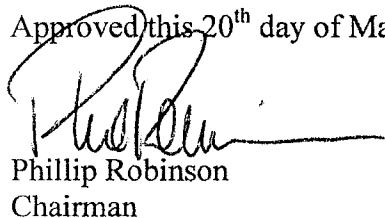 Approved this 20th day of Ma
Phillip Robinson
Chairman